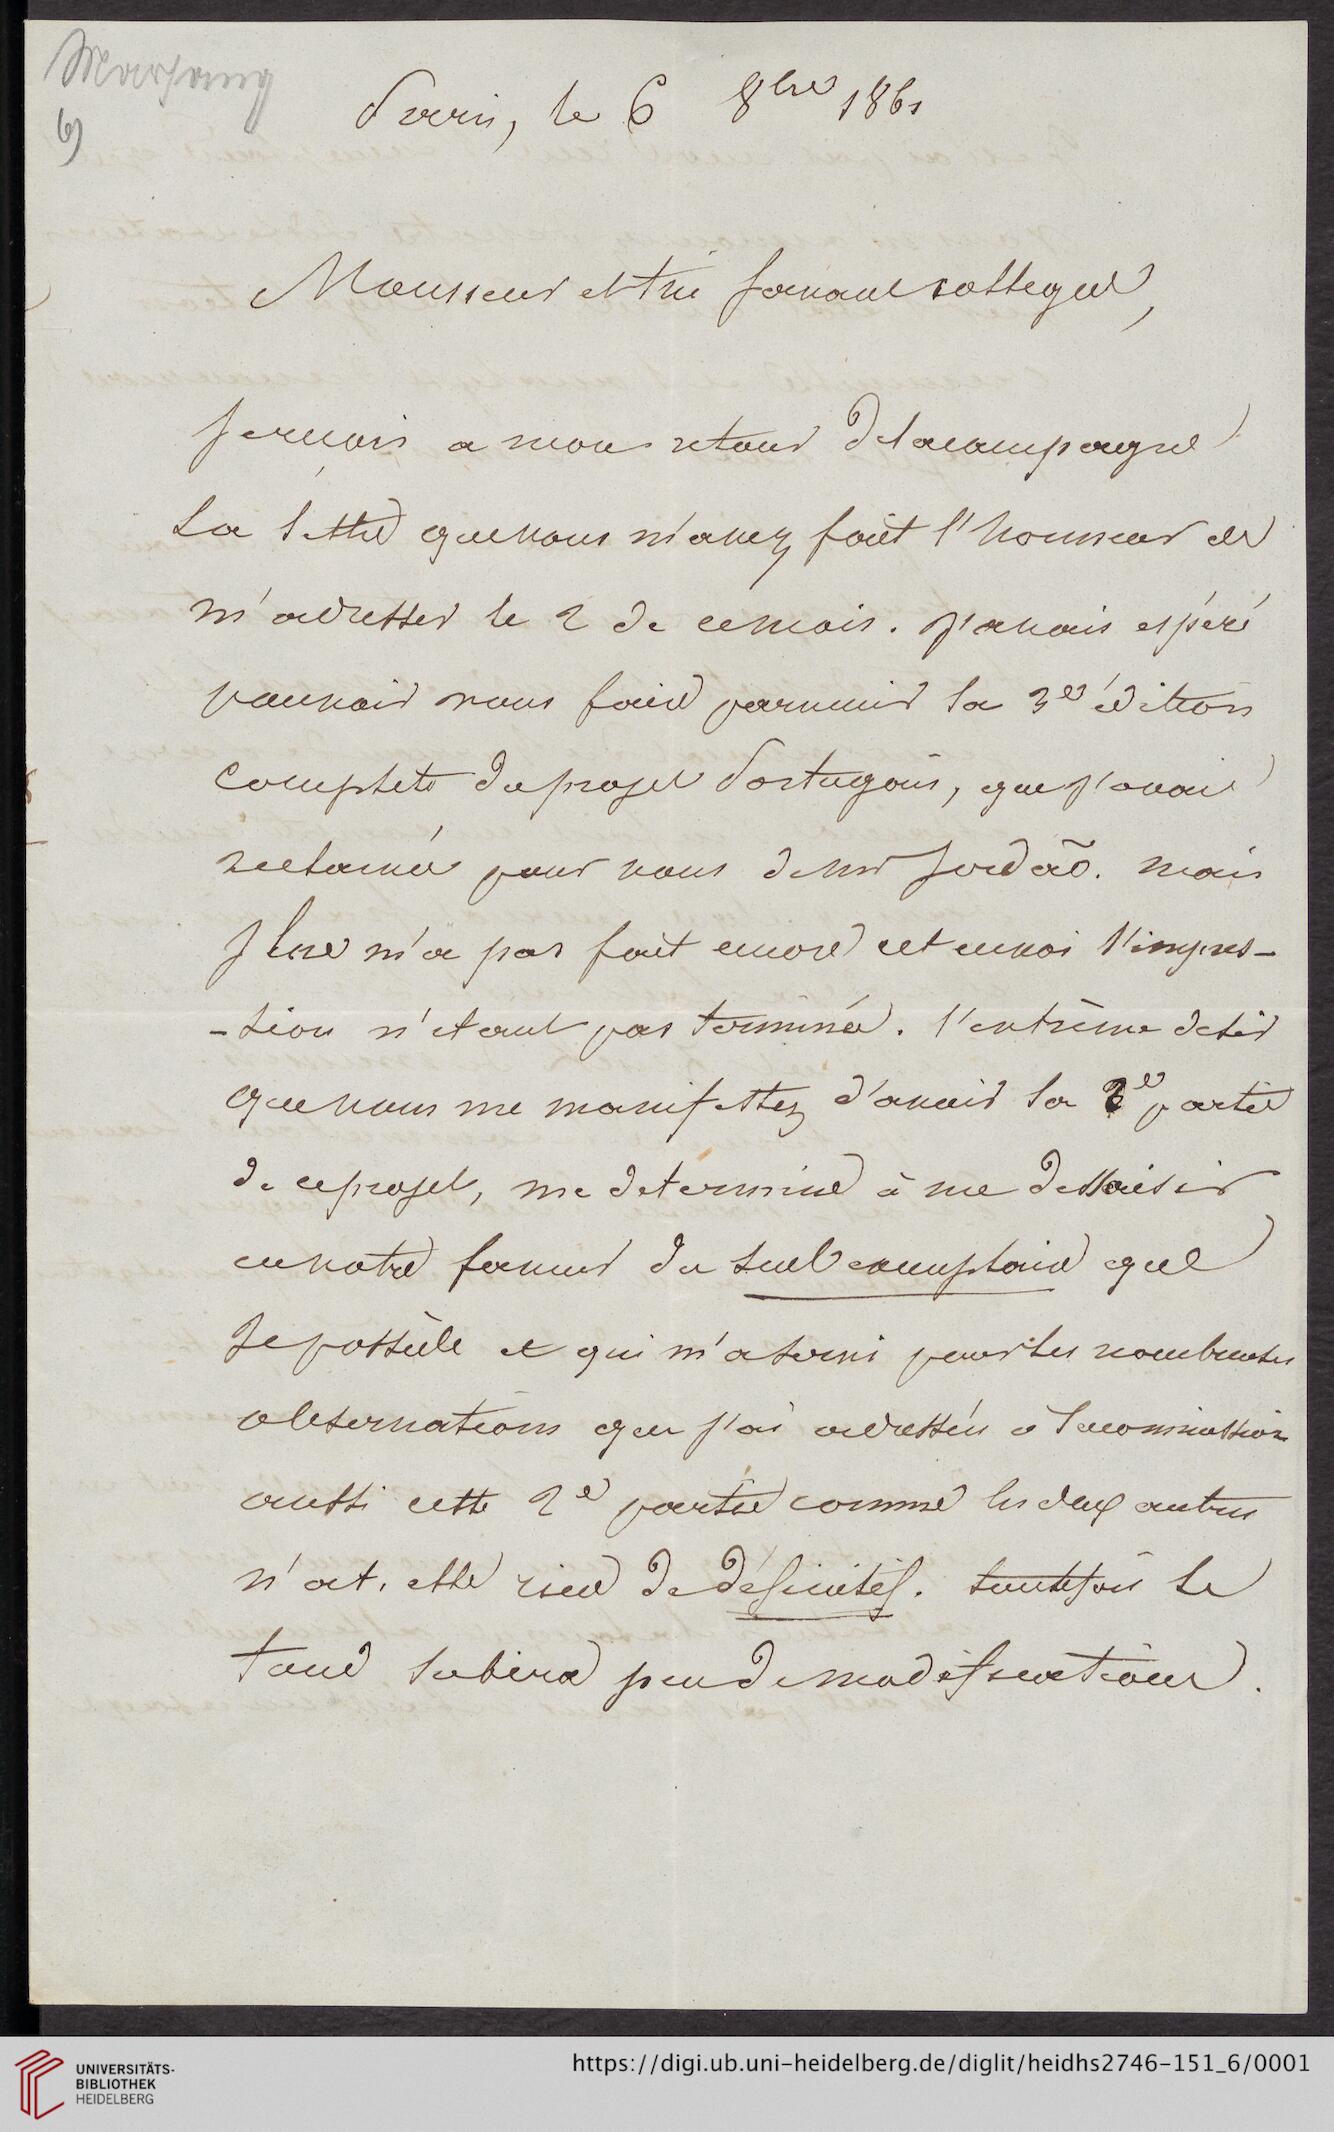 6)
Paris, le 6 8bre 1861
Monsieur et très savant collegue,
Je reçois a mon retour de la campagne
la lettre que vous m'avez fait l'honneur de
m'adresser le 2 de ce mois. J'avais espéré
pouvoir vous faire parvenir la 3e édition
complete du projet Portugais, que j'avais
reclamée pour vous de Mr Jordaõ. mais
Il ne m'a pas fait encore cet envoi l'impres-
-sion n'etant pas terminée. l'extrème desir
que vous me manifestez d'avoir la 2e partie
de ce projet, me determine à me dessaisir
en votre faveur du seul exemplaire que
je possède et qui m'a servi pour les nombreuses
observations que j'ai adressées à la commission
aussi cette 2e partie comme les deux autres
n'a-t-elle rien de définitif. toutefois le
fond subira peu de modifications.
UNIVERSITÄTS-
BIBLIOTHEK
HEIDELBERG
https://digi.ub.uni-heidelberg.de/diglit/heidhs2746-151_6/0001